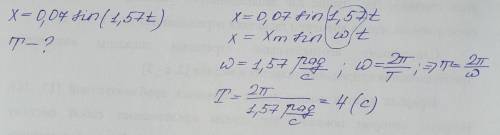 x = 0,07 sin(1,57t)
T - ?
x = 0,07 sin(1,57)t
x = xm sin ω t
ω = 1,57 рад/с ; ω = 2π/T ; ⇒ T = 2π/ω
T = 2π/1,57 рад/с = 4 (с)